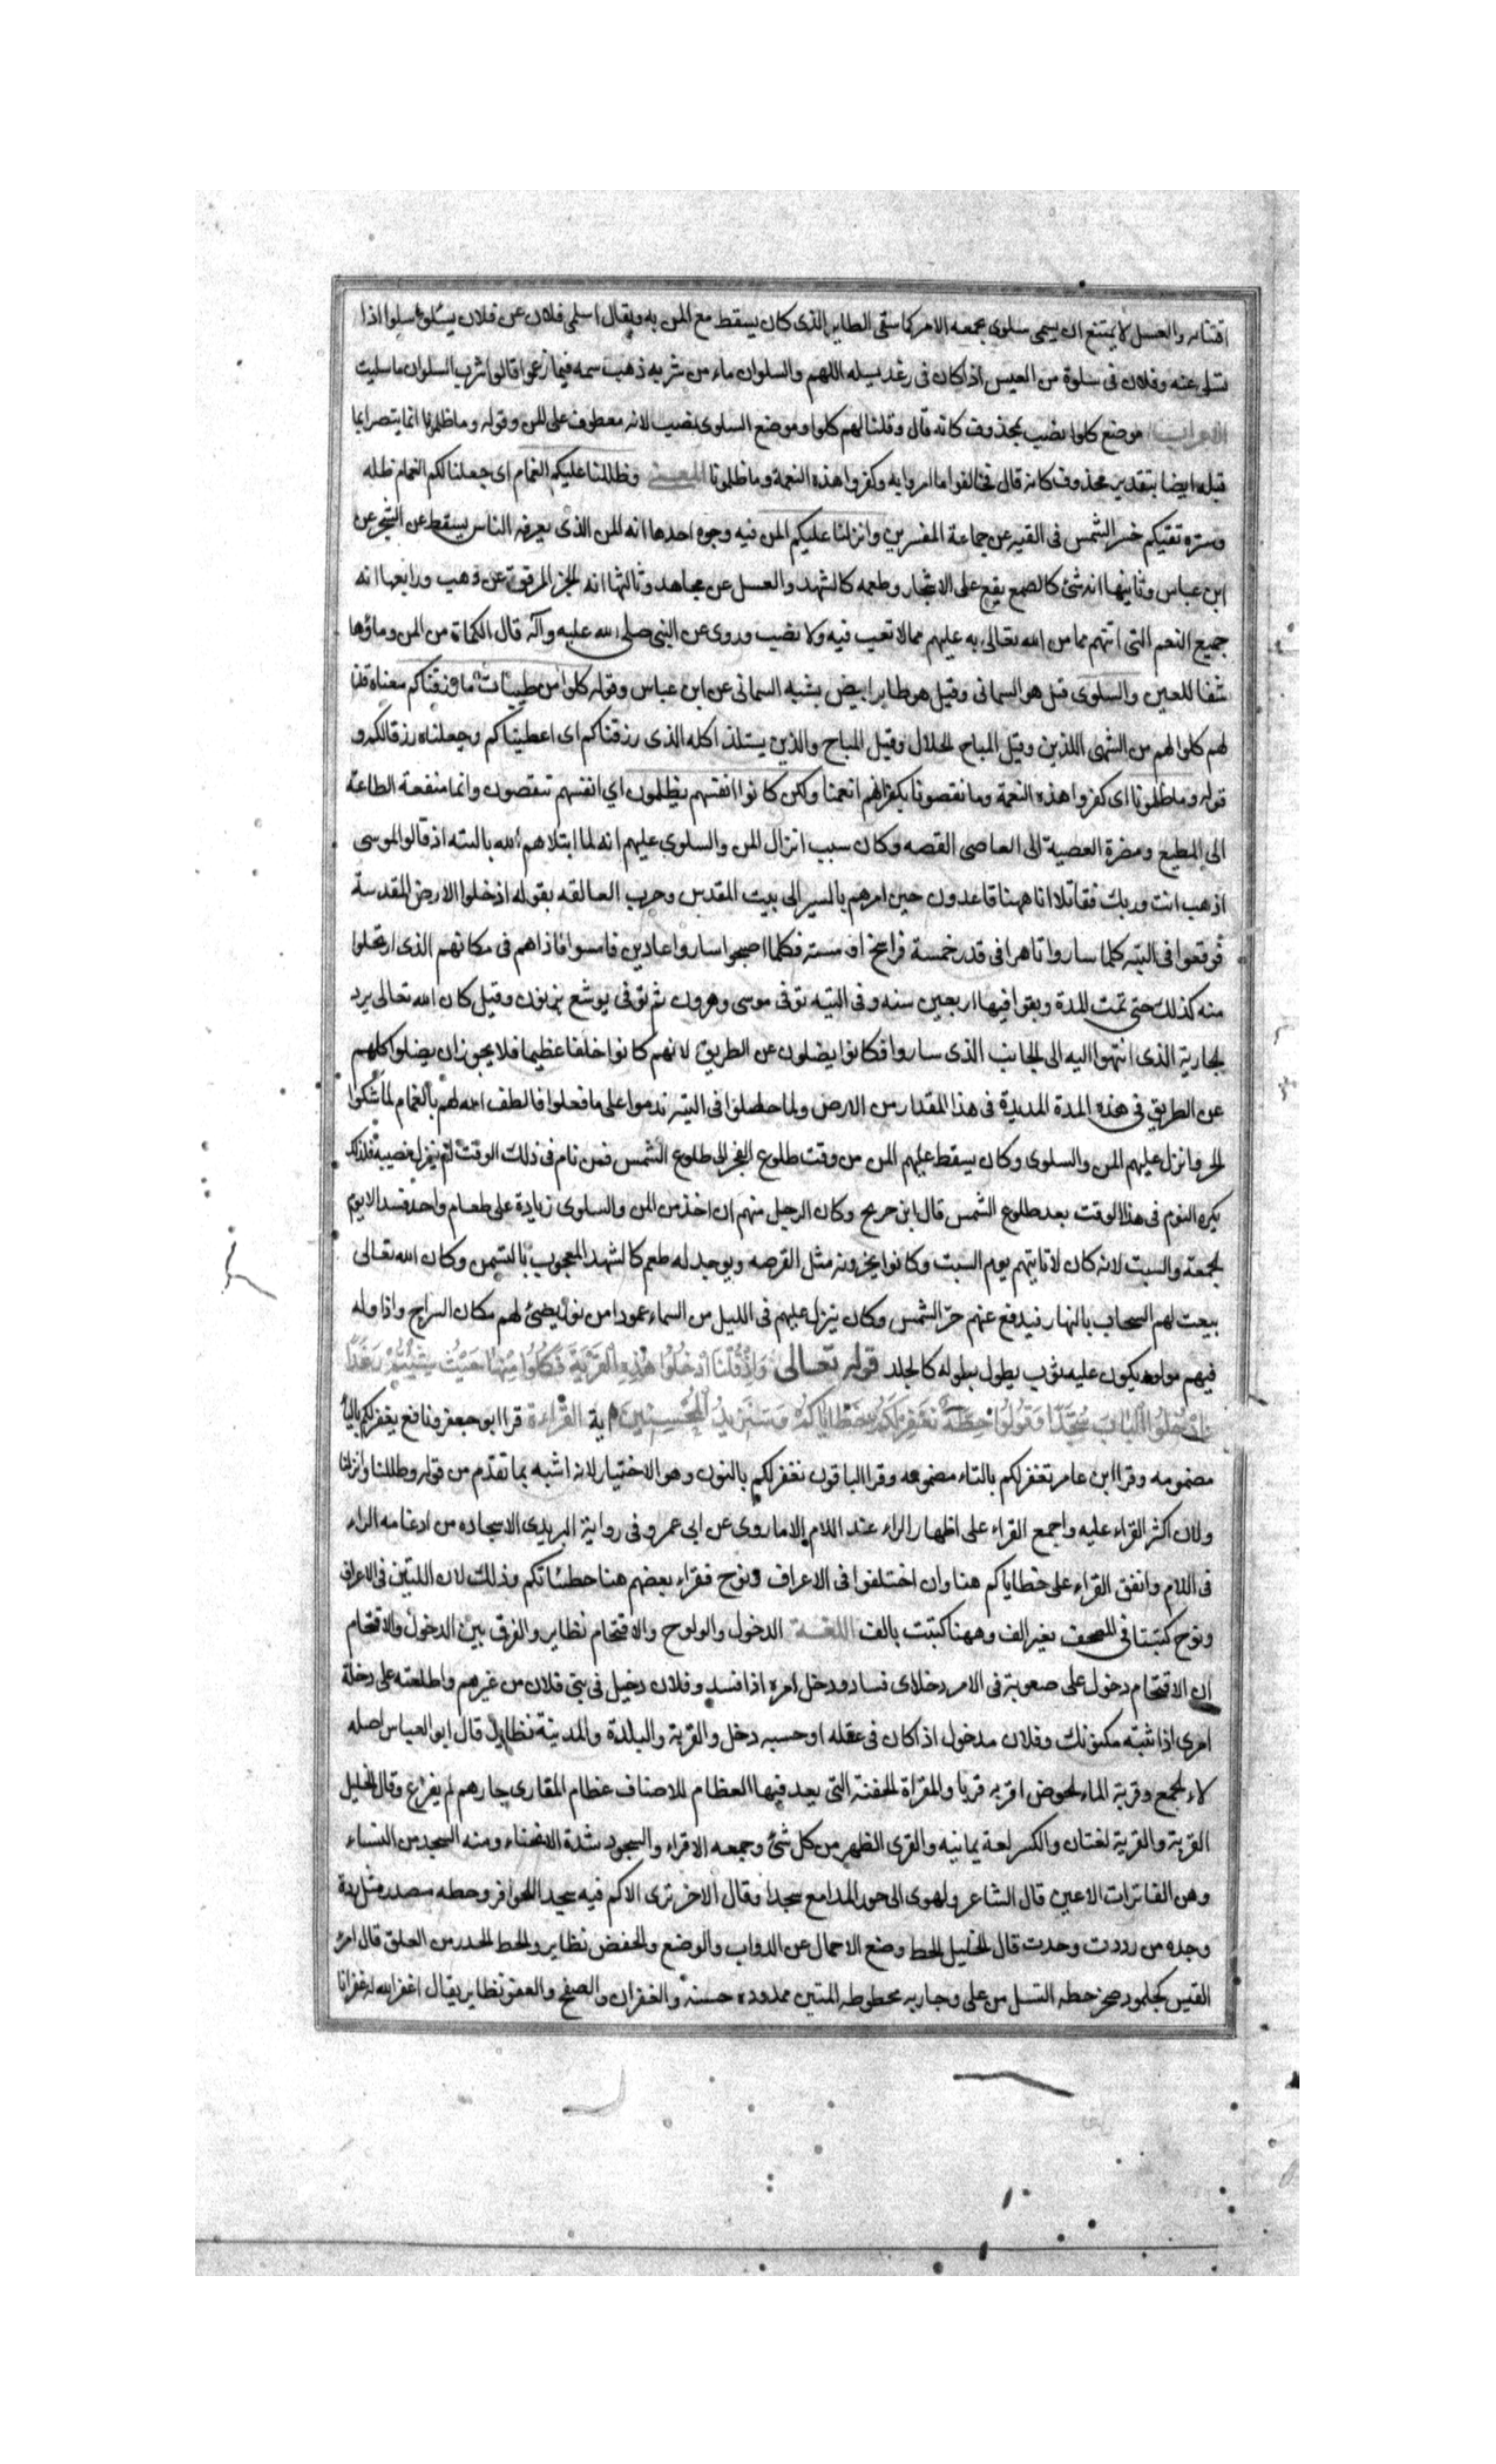 اقتنائه والعسل لا يمتنع ان يسمى سلوى بجمعه الامر كما سمى الطاير الذى كان يسقط مع المن به ويقال اسلى فلان عن فلان يسلو سلوا اذا
تسلى عنه وفلان فى سلوة من العيس اذا كان فى رغد يسيله اللهم والسلوان ماء من شربه ذهب سمه فيما زعموا قالوا شرب السلوان ما سليت
الاعراب موضع كلوا نصب بمحذوف كانه قال وقلنا لهم كلوا وموضع السلوى نصب لانه معطوف على المن وقوله وما ظلمونا انما يتصر ايما
قبله ايضا بتقدير محذوف كانه قال فخالفوا ما امروا به وكفروا هذه النعمة وما ظلمونا المعنى وظللنا عليكم الغمام اى جعلنا لكم الغمام ظله
وستره تقيكم حر الشمس فى التيه عن جماعة المفسرين وانزلنا عليكم المن فيه وجوه احدها انه المن الذى يعرفه الناس يسقط عن الشجر عن
ابن عباس وثانيها انه شئ كالصمغ يقع على الاشجار وطعمه كالشهد والعسل عن مجاهد وثالثها انه الخبز المرقوق عن وهب ورابعها انه
جميع النعم التى اتتهم مما من الله تعالى به عليهم مما لا تعب فيه ولا نصب وروى عن النبى صلى الله عليه وآله قال الكماة من المن وماؤها
شفا للعين والسلوى قيل هو السمانى وقيل هو طاير ابيض يشبه السمانى عن ابن عباس وقوله كلوا من طيبات ما رزقناكم معناه قلنا
لهم كلوا لهم من الشهى اللذيذ وقيل المباح الحلال وقيل المباح والذين يستلذ اكله الذى رزقناكم اى اعطيناكم وجعلناه رزقا لكم و
قوله وما ظلمونا اى كفروا هذه النعمة وما نقصونا بكفرانهم انعمنا ولكن كانوا انفسهم يظلمون اي انفسهم تنقصون وانما منفعة الطاعة
الى المطيع ومضرة العصية الى العاصى القصه وكان سبب انزال المن والسلوى عليهم انه لما ابتلاهم الله بالتيه اذ قالوا لموسى
اذهب انت وربك فقاتلا انا ههنا قاعدون حين امرهم بالسير الى بيت المقدس وحرب العمالقه بقوله ادخلوا الارض المقدسة
فوقعوا فى التيه كلما ساروا تاهوا فى قدر خمسة فراسخ او سته فكلما اصبحوا ساروا عادين فامسوا فاذا هم فى مكانهم الذى ارتحلوا
منه كذلك حتى تمت المدة وبقوا فيها اربعين سنه وفى التيه توفى موسى وهرون ثم توفى يوشع بن نون وقيل كان الله تعالى يرد
الجارية الذى انتهوا اليه الى الجانب الذى ساروا فكانوا يضلون عن الطريق لانهم كانوا خلقا عظيما فلا يجوز ان يضلوا كلهم
عن الطريق فى هذه المدة المديدة فى هذا المقدار من الارض ولما حصلوا فى التيه ندموا على ما فعلوا فالطف الله لهم بالغمام لما شكوا
الحر وانزل عليهم المن والسلوى وكان يسقط عليهم المن من وقت طلوع الفجر الى طلوع الشمس فمن نام فى ذلك الوقت لم ينزل نصيبه فلذلك
يكره النوم فى هذا الوقت بعد طلوع الشمس قال ابن جريح وكان الرجل منهم ان اخذ من المن والسلوى زيادة على طعام واحد فسد الا يوم
الجمعة والسبت لانه كان لا تايتهم يوم السبت وكانوا يخبزونه مثل القرصه ويوجد له طعم كالشهد المعجون بالسمن وكان الله تعالى
يبعث لهم السحاب بالنهار فيدفع عنهم حر الشمس وكان ينزل عليهم فى الليل من السماء عمودا من نور يضئ لهم مكان السراج واذا وله
فيهم مولود يكون عليه ثوب يطول بطوله كالجلد قوله تعالى وَاِذْ قُلْنَا ادْخُلُوا هٰذِهِ الْقَرْيَةَ فَكُلُوا مِنْهَا حَيْثُ شِئْتُمْ رَغَدًا
وَادْخُلُوا الْبَابَ سُجَّدًا وَقُولُوا حِطَّةٌ نَغْفِرْ لَكُمْ خَطَايَاكُمْ وَسَنَزِيدُ الْمُحْسِنِينَ اية القراءة قرا ابو جعفر ونافع يغفر لكم بالياء
مضمومه وقرا ابن عامر تغفر لكم بالتاء مضمومه وقرا الباقون نغفر لكم بالنون وهو الاختيار لانه اشبه بما تقدم من قوله وظللنا وانزلنا
ولان اكثر القراء عليه واجمع القراء على اظهار الراء عند اللام الا ما روى عن ابى عمرو فى رواية اليزيدى الاسجاده من ادغامه الراء
فى اللام واتفق القراء على خطاياكم هنا وان اختلفوا فى الاعراف ونوح فقراء بعضهم هنا خطئاتكم وذلك لان اللتين فى الاعراف
ونوح كتبتا فى المصحف بغير الف وههنا كتبت بالف اللغة الدخول والولوح والاقتحام نظاير والفرق بين الدخول والاقتحام
ان الاقتحام دخول على صعوبة فى الامر دخلا اى فساد ودخل امره اذا فسد وفلان دخيل فى بنى فلان من غيرهم واطلعته على دخلة
امرى اذا بثثته مكنونك وفلان مدخول اذا كان فى عقله او حسبه دخل والقرية والبلدة والمدينة نظاير قال ابو العباس اصله
لاء الجمع وقرية الماء الحوض اقربه قريا والمقراة الحفنة التى يعد فيها العظام للاصناف عظام المقارى جارهم لم يفزع وقال الخليل
القرية والقرية لغتان والكسر لعة يمانيه والقرى الظهر من كل شئ وجمعه الاقراء والسجود شدة الانحناء ومنه السجد من النساء
وهن الفاترات الاعين قال الشاعر ولهوى الى حور المدامع سجدا وقال الاخر ترى الاكم فيه سجد اللحوافر وحطه مصدر مثل ردة
وجده من رددت وحدت قال الخليل الحط وضع الاحمال عن الدواب والوضع والخفض نظاير والحط الحدر من العلق قال امرؤ
القيس كجلمود صخر حطه السيل من على وجاريه محطوطه المتين ممدوده حسنة والغفران والصفح والعفو نظاير يقال اغفر الله له غفرانا